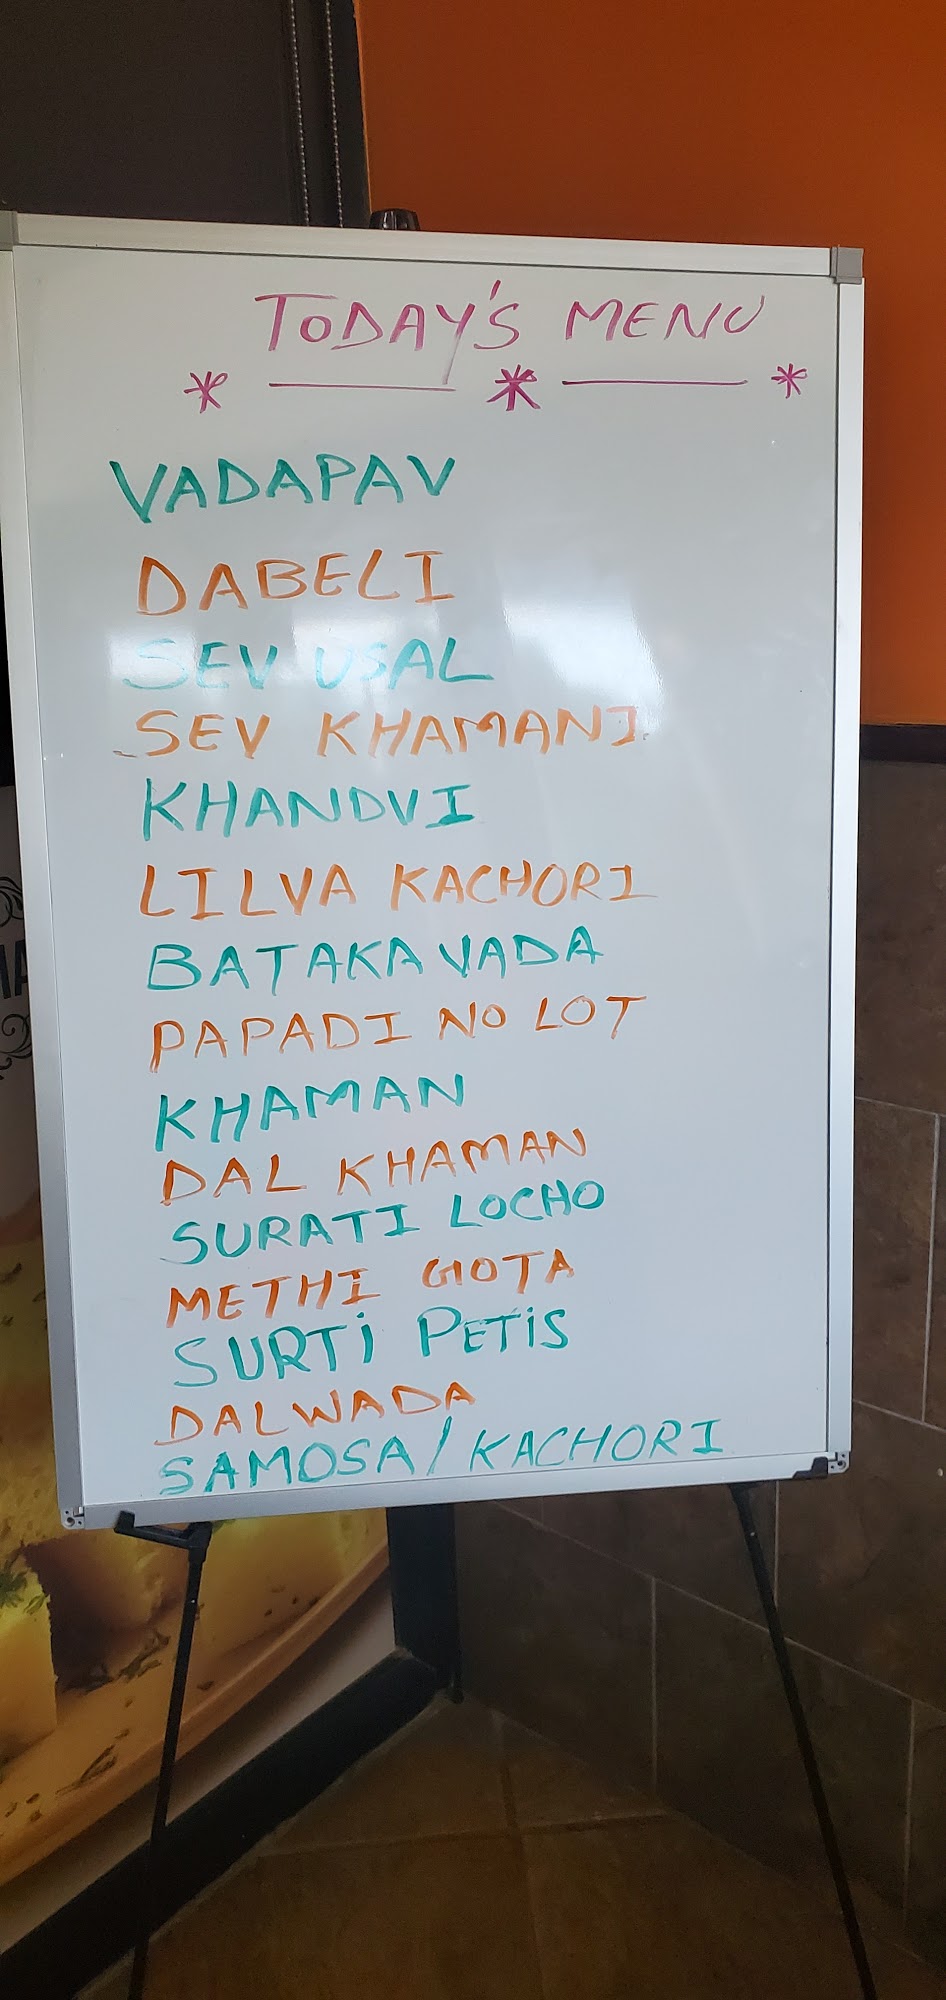 TODAY'S MENU
* — * — *
VADAPAV
DABELI
SEV USAL
SEV KHAMANI
KHANDVI
LILVA KACHORI
BATAKA VADA
PAPADI NO LOT
KHAMAN
DAL KHAMAN
SURATI LOCHO
METHI GOTA
SURTI PETIS
DALWADA
SAMOSA/KACHORI